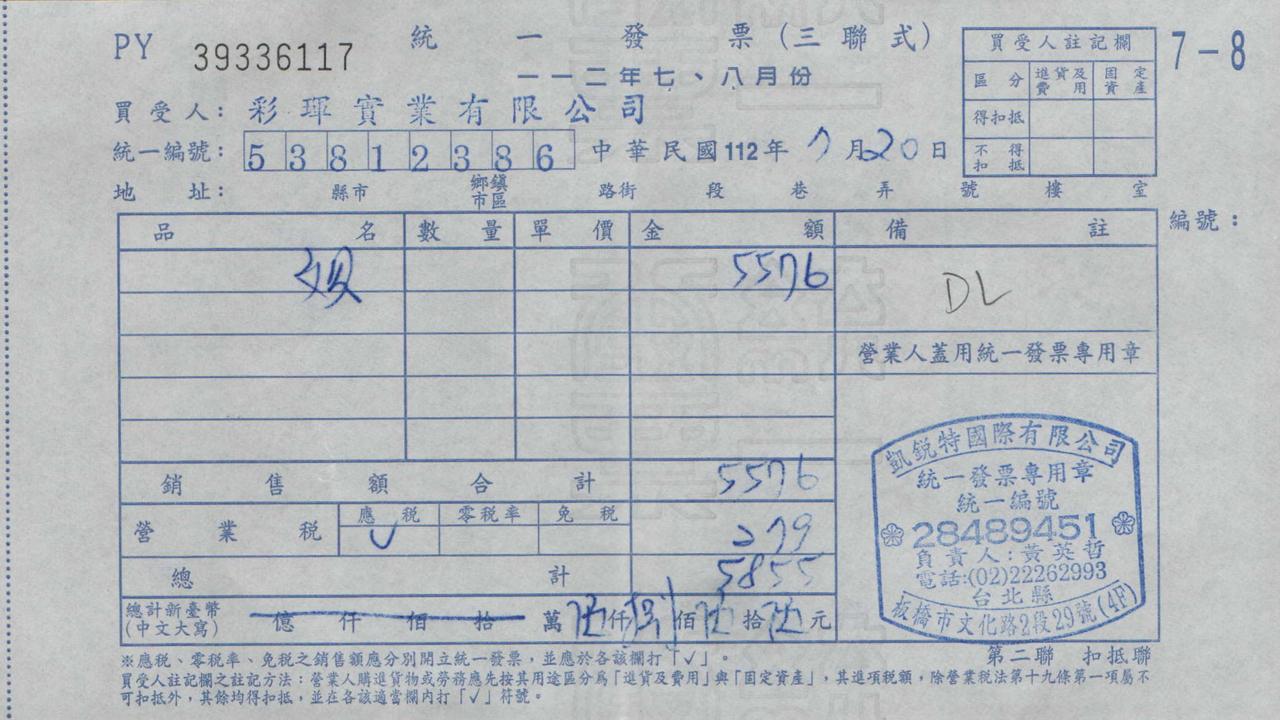 PY 39336117 統一發票(三聯式)
一一二年七、八月份
7-8
買受人註記欄
區分 進貨及費用 固定資產
得扣抵
不得扣抵
買受人: 彩琿實業有限公司
統一編號: 53812386 中華民國112年7月20日
地址: 縣市 鄉鎮市區 路街 段 巷 弄 號 樓 室
編號:
品名 數量 單價 金額 備註
5576
DL
營業人蓋用統一發票專用章
銷售額合計 5576
營業稅 應稅 零稅率 免稅 279
✓
總計 5855
總計新臺幣(中文大寫) 億仟佰拾萬伍仟捌佰伍拾伍元
凱銳特國際有限公司
統一發票專用章
統一編號
28489451
負責人:黃英哲
電話:(02)22262993
台北縣
板橋市文化路2段29號(4F)
第二聯 扣抵聯
※應稅、零稅率、免稅之銷售額應分別開立統一發票,並應於各該欄打「✓」。
買受人註記欄之註記方法:營業人購進貨物或勞務應先按其用途區分為「進貨及費用」與「固定資產」,其進項稅額,除營業稅法第十九條第一項屬不
可扣抵外,其餘均得扣抵,並在各該適當欄內打「✓」符號。